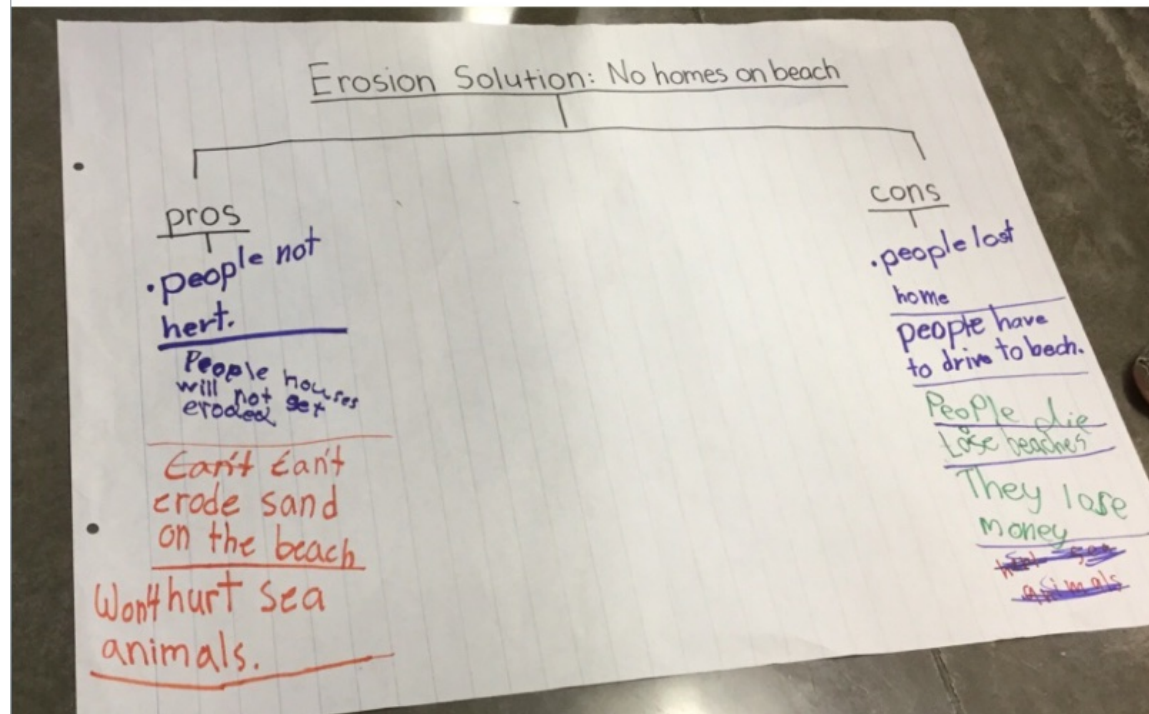 Erosion Solution: No homes on beach
pros
• people not
hert.
People houses
will not get
eroded
Can't Can't
erode sand
on the beach
Won't hurt sea
animals.
cons
• people lost
home
people have
to drive to bech.
People die
Lose beaches
They lose
money
animals